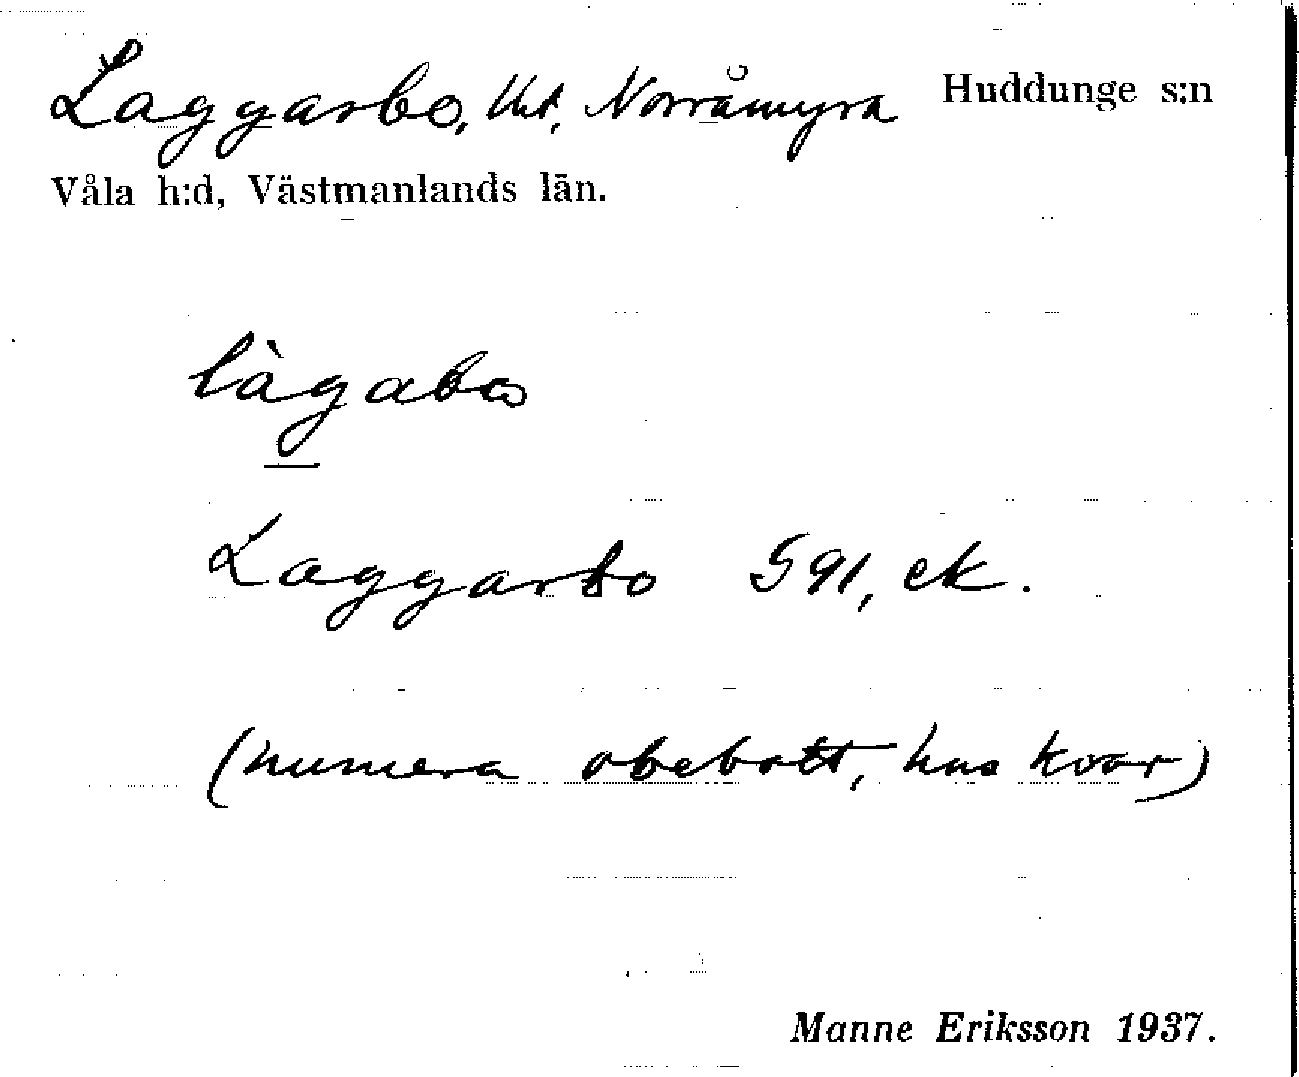 Laggarbo, lht, Norråmyra Huddunge s:n
Våla h:d, Västmanlands län.
làgabω
Laggarbo G 91, ek.
(numera obebott, hus kvar)
Manne Eriksson 1937.